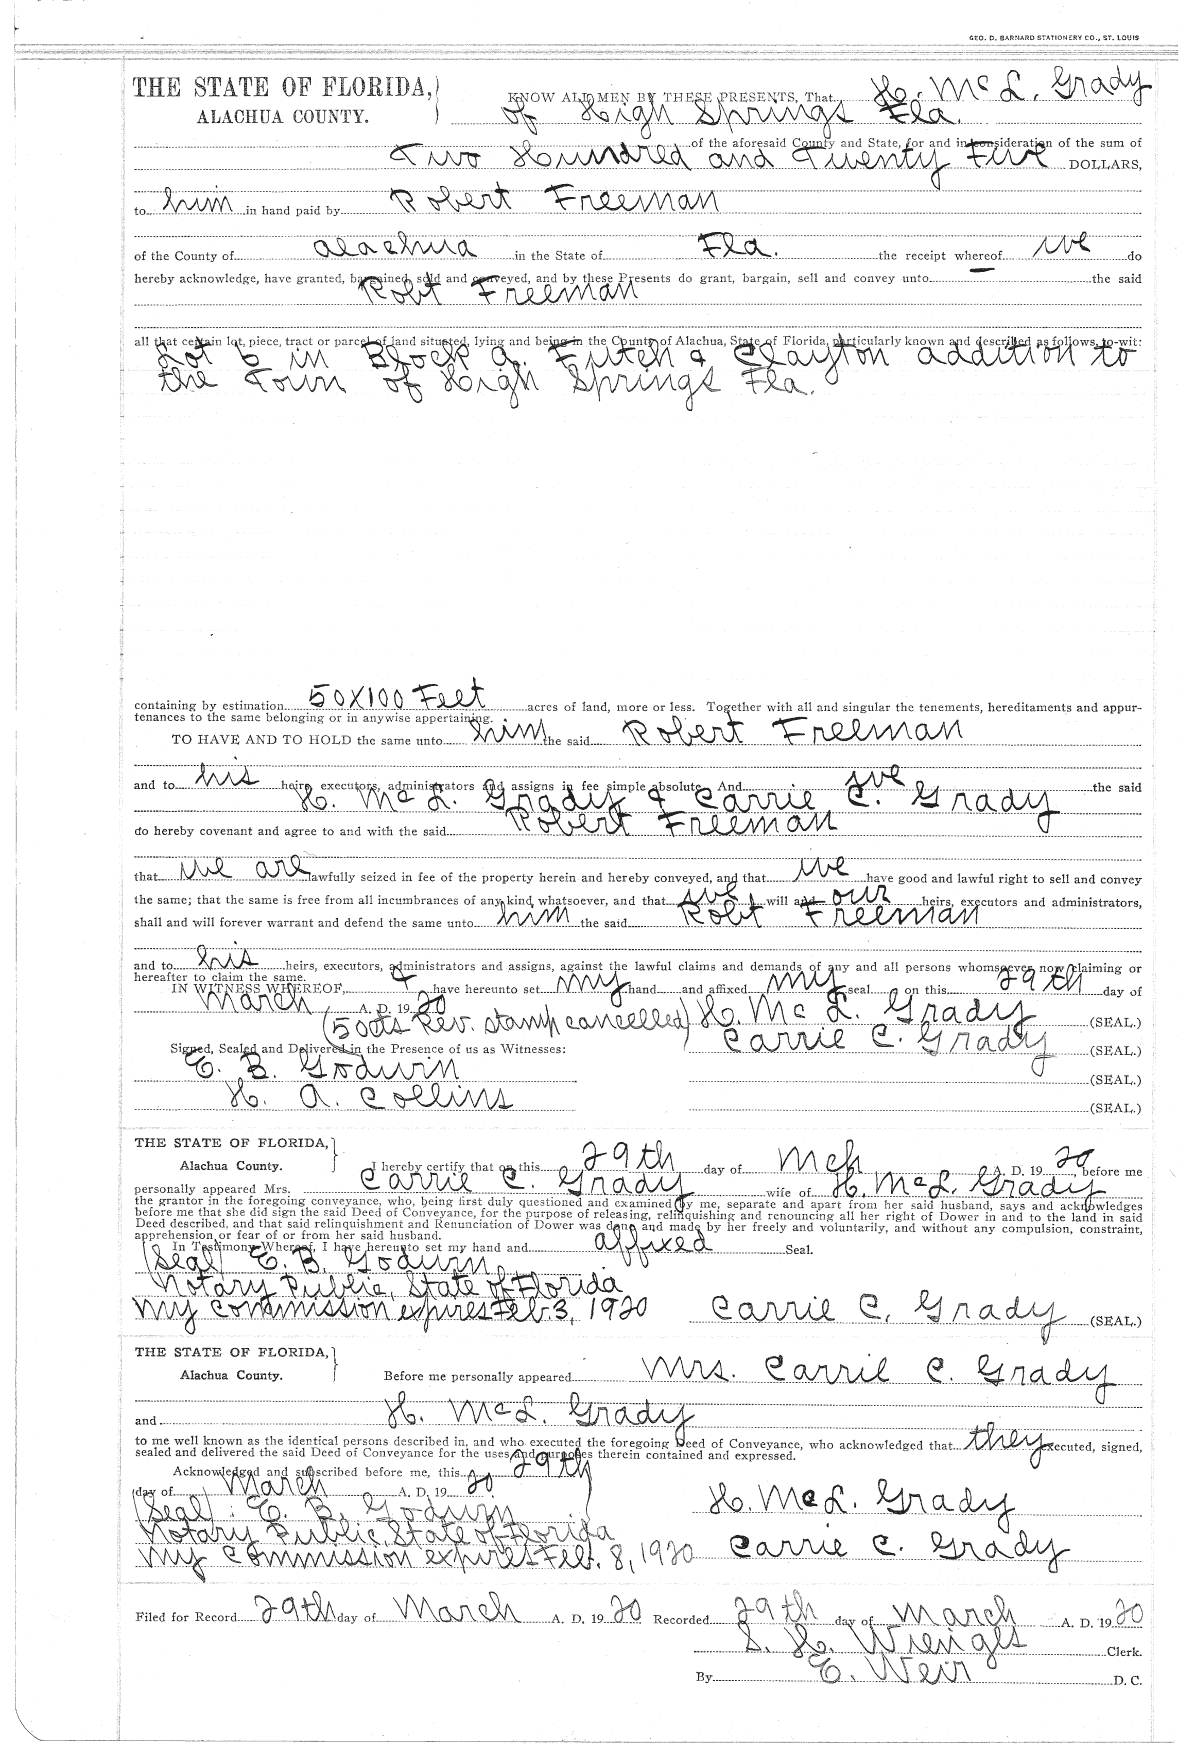 GEO. D. BARNARD STATIONERY CO., ST. LOUIS
THE STATE OF FLORIDA,
ALACHUA COUNTY.
KNOW ALL MEN BY THESE PRESENTS, That H. McL. Grady
of High Springs Fla.
of the aforesaid County and State, for and in consideration of the sum of
Two Hundred and Twenty Five DOLLARS,
to him in hand paid by Robert Freeman
of the County of Alachua in the State of Fla. the receipt whereof we do
hereby acknowledge, have granted, bargained, sold and conveyed, and by these Presents do grant, bargain, sell and convey unto the said
Robt Freeman
all that certain lot, piece, tract or parcel of land situated, lying and being in the County of Alachua, State of Florida, particularly known and described as follows, to-wit:
Lot 6 in Block a. Futch & Clayton addition to
the Town of High Springs Fla.
containing by estimation 50X100 Feet acres of land, more or less. Together with all and singular the tenements, hereditaments and appur-
tenances to the same belonging or in anywise appertaining.
TO HAVE AND TO HOLD the same unto him the said Robert Freeman
and to his heirs, executors, administrators and assigns in fee simple absolute. And we the said
H. McL. Grady & Carrie C. Grady
do hereby covenant and agree to and with the said Robert Freeman
that we are lawfully seized in fee of the property herein and hereby conveyed, and that we have good and lawful right to sell and convey
the same; that the same is free from all incumbrances of any kind whatsoever, and that we will and our heirs, executors and administrators,
shall and will forever warrant and defend the same unto him the said Robt Freeman
and to his heirs, executors, administrators and assigns, against the lawful claims and demands of any and all persons whomsoever now claiming or
hereafter to claim the same.
IN WITNESS WHEREOF, I have hereunto set my hand and affixed my seal on this 29th day of
March A. D. 1920
(50cts Rev. stamp cancelled) H. McL. Grady (SEAL.)
Carrie C. Grady (SEAL.)
Signed, Sealed and Delivered in the Presence of us as Witnesses:
E. B. Godwin (SEAL.)
H. A. Collins (SEAL.)
THE STATE OF FLORIDA,
Alachua County.
I hereby certify that on this 29th day of Mch A. D. 1920, before me
personally appeared Mrs. Carrie C. Grady wife of H. McL. Grady
the grantor in the foregoing conveyance, who, being first duly questioned and examined by me, separate and apart from her said husband, says and acknowledges
before me that she did sign the said Deed of Conveyance, for the purpose of releasing, relinquishing and renouncing all her right of Dower in and to the land in said
Deed described, and that said relinquishment and Renunciation of Dower was done and made by her freely and voluntarily, and without any compulsion, constraint,
apprehension or fear of or from her said husband.
In Testimony Whereof, I have hereunto set my hand and affixed Seal.
(Seal) E. B. Godwin,
Notary Public, State of Florida
My commission expires Feb. 3, 1920 Carrie C. Grady (SEAL.)
THE STATE OF FLORIDA,
Alachua County.
Before me personally appeared Mrs. Carrie C. Grady
and H. McL. Grady
to me well known as the identical persons described in, and who executed the foregoing Deed of Conveyance, who acknowledged that they executed, signed,
sealed and delivered the said Deed of Conveyance for the uses and purposes therein contained and expressed.
Acknowledged and subscribed before me, this 29th
day of March A. D. 1920
(Seal) E. B. Godwin
H. McL. Grady
Notary Public, State of Florida
My Commission expires Feb. 8, 1920 Carrie C. Grady
Filed for Record 29th day of March A. D. 1920 Recorded 29th day of March A. D. 1920
S. H. Wienges Clerk.
By E. Weir D. C.